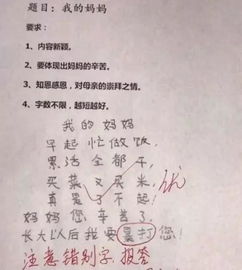 题目：我的妈妈
要求：
1、内容新颖。
2、要体现出妈妈的辛苦。
3、知恩感恩，对母亲的崇拜之情。
4、字数不限，越短越好。
我的妈妈
早起忙做饭，
累活全都干，
买菜又买米，
真是了不起！
妈妈您辛苦了，
长大以后我要暴打您！
优
注意错别字，报答